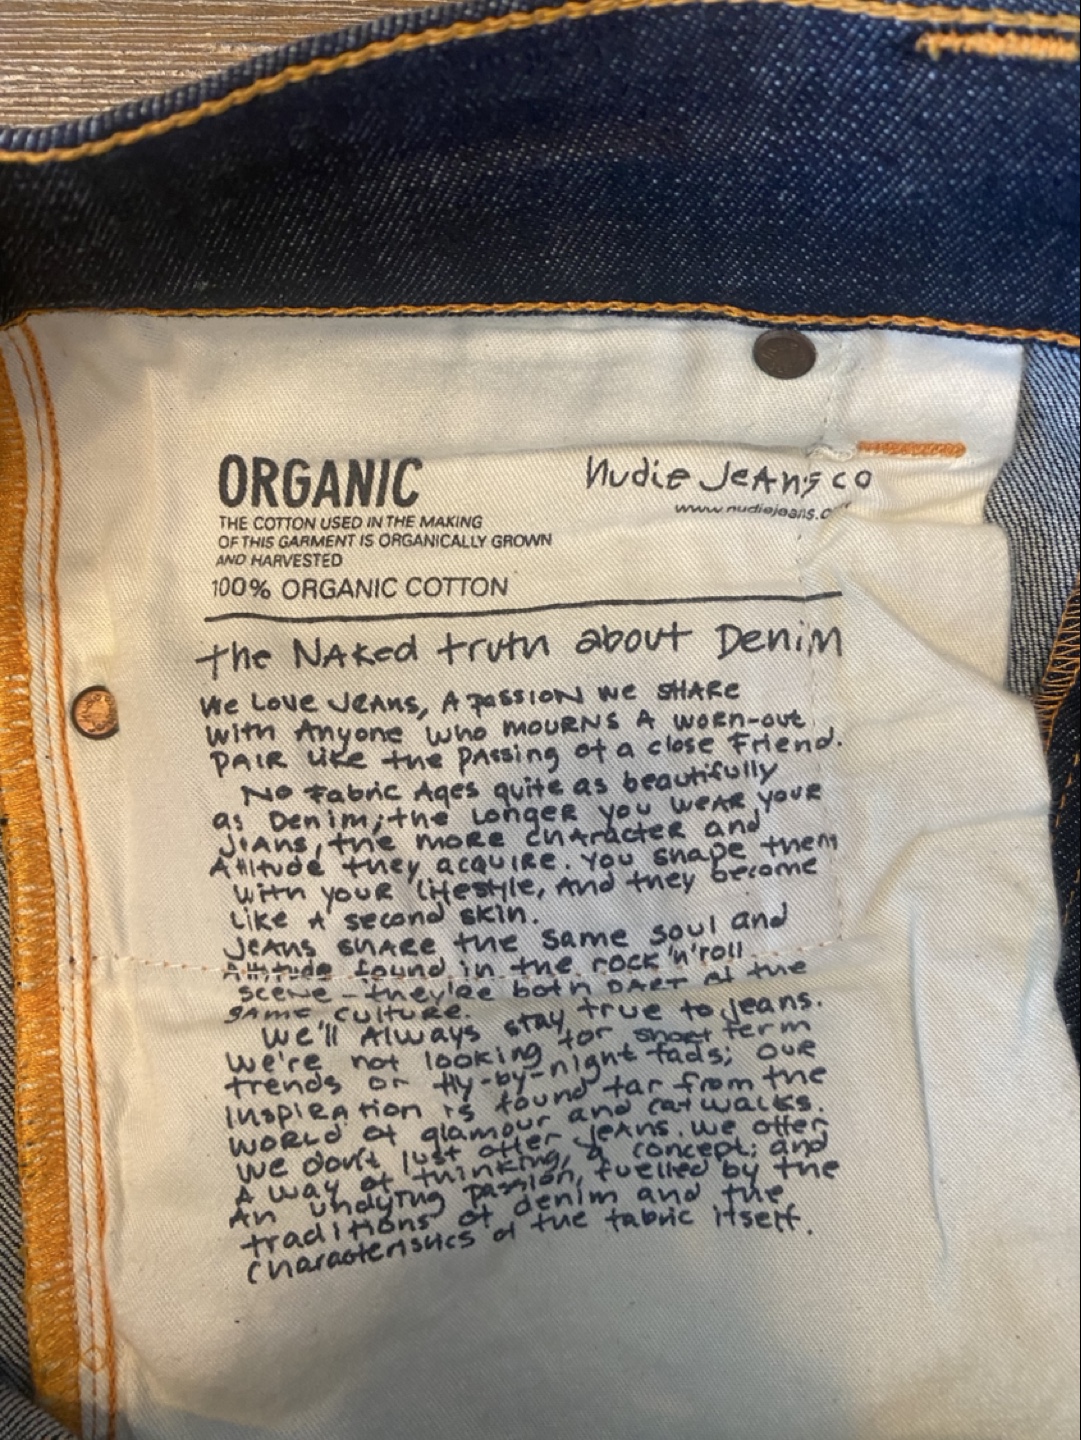 ORGANIC
THE COTTON USED IN THE MAKING
OF THIS GARMENT IS ORGANICALLY GROWN
AND HARVESTED
100% ORGANIC COTTON
Nudie Jeans co
www.nudiejeans.c
the NAKed truth about Denim
We Love JeAns, A pASSION we SHARe
with Anyone who mourns A worn-out
PAIR Like the pAssing of a close Friend.
No Fabric Ages quite as beautifully
as Denim; the Longer you weAR your
JeAns, the more chAracter and
Attitude they acquire. You shape them
with your Lifestyle, And they become
Like A second skin.
JeAns shAre the same soul and
Attitude found in the rock 'n' roll
scene - they're both pArt of the
same culture.
We'll Always stay true to jeans.
We're not looking for short term
trends or fly-by-night fads; our
Inspiration is found far from the
world of glamour and catwalks.
We don't just offer jeAns. we offer
A way of thinking, a concept; and
An undying passion, fuelled by the
traditions of denim and the
characteristics of the fabric itself.